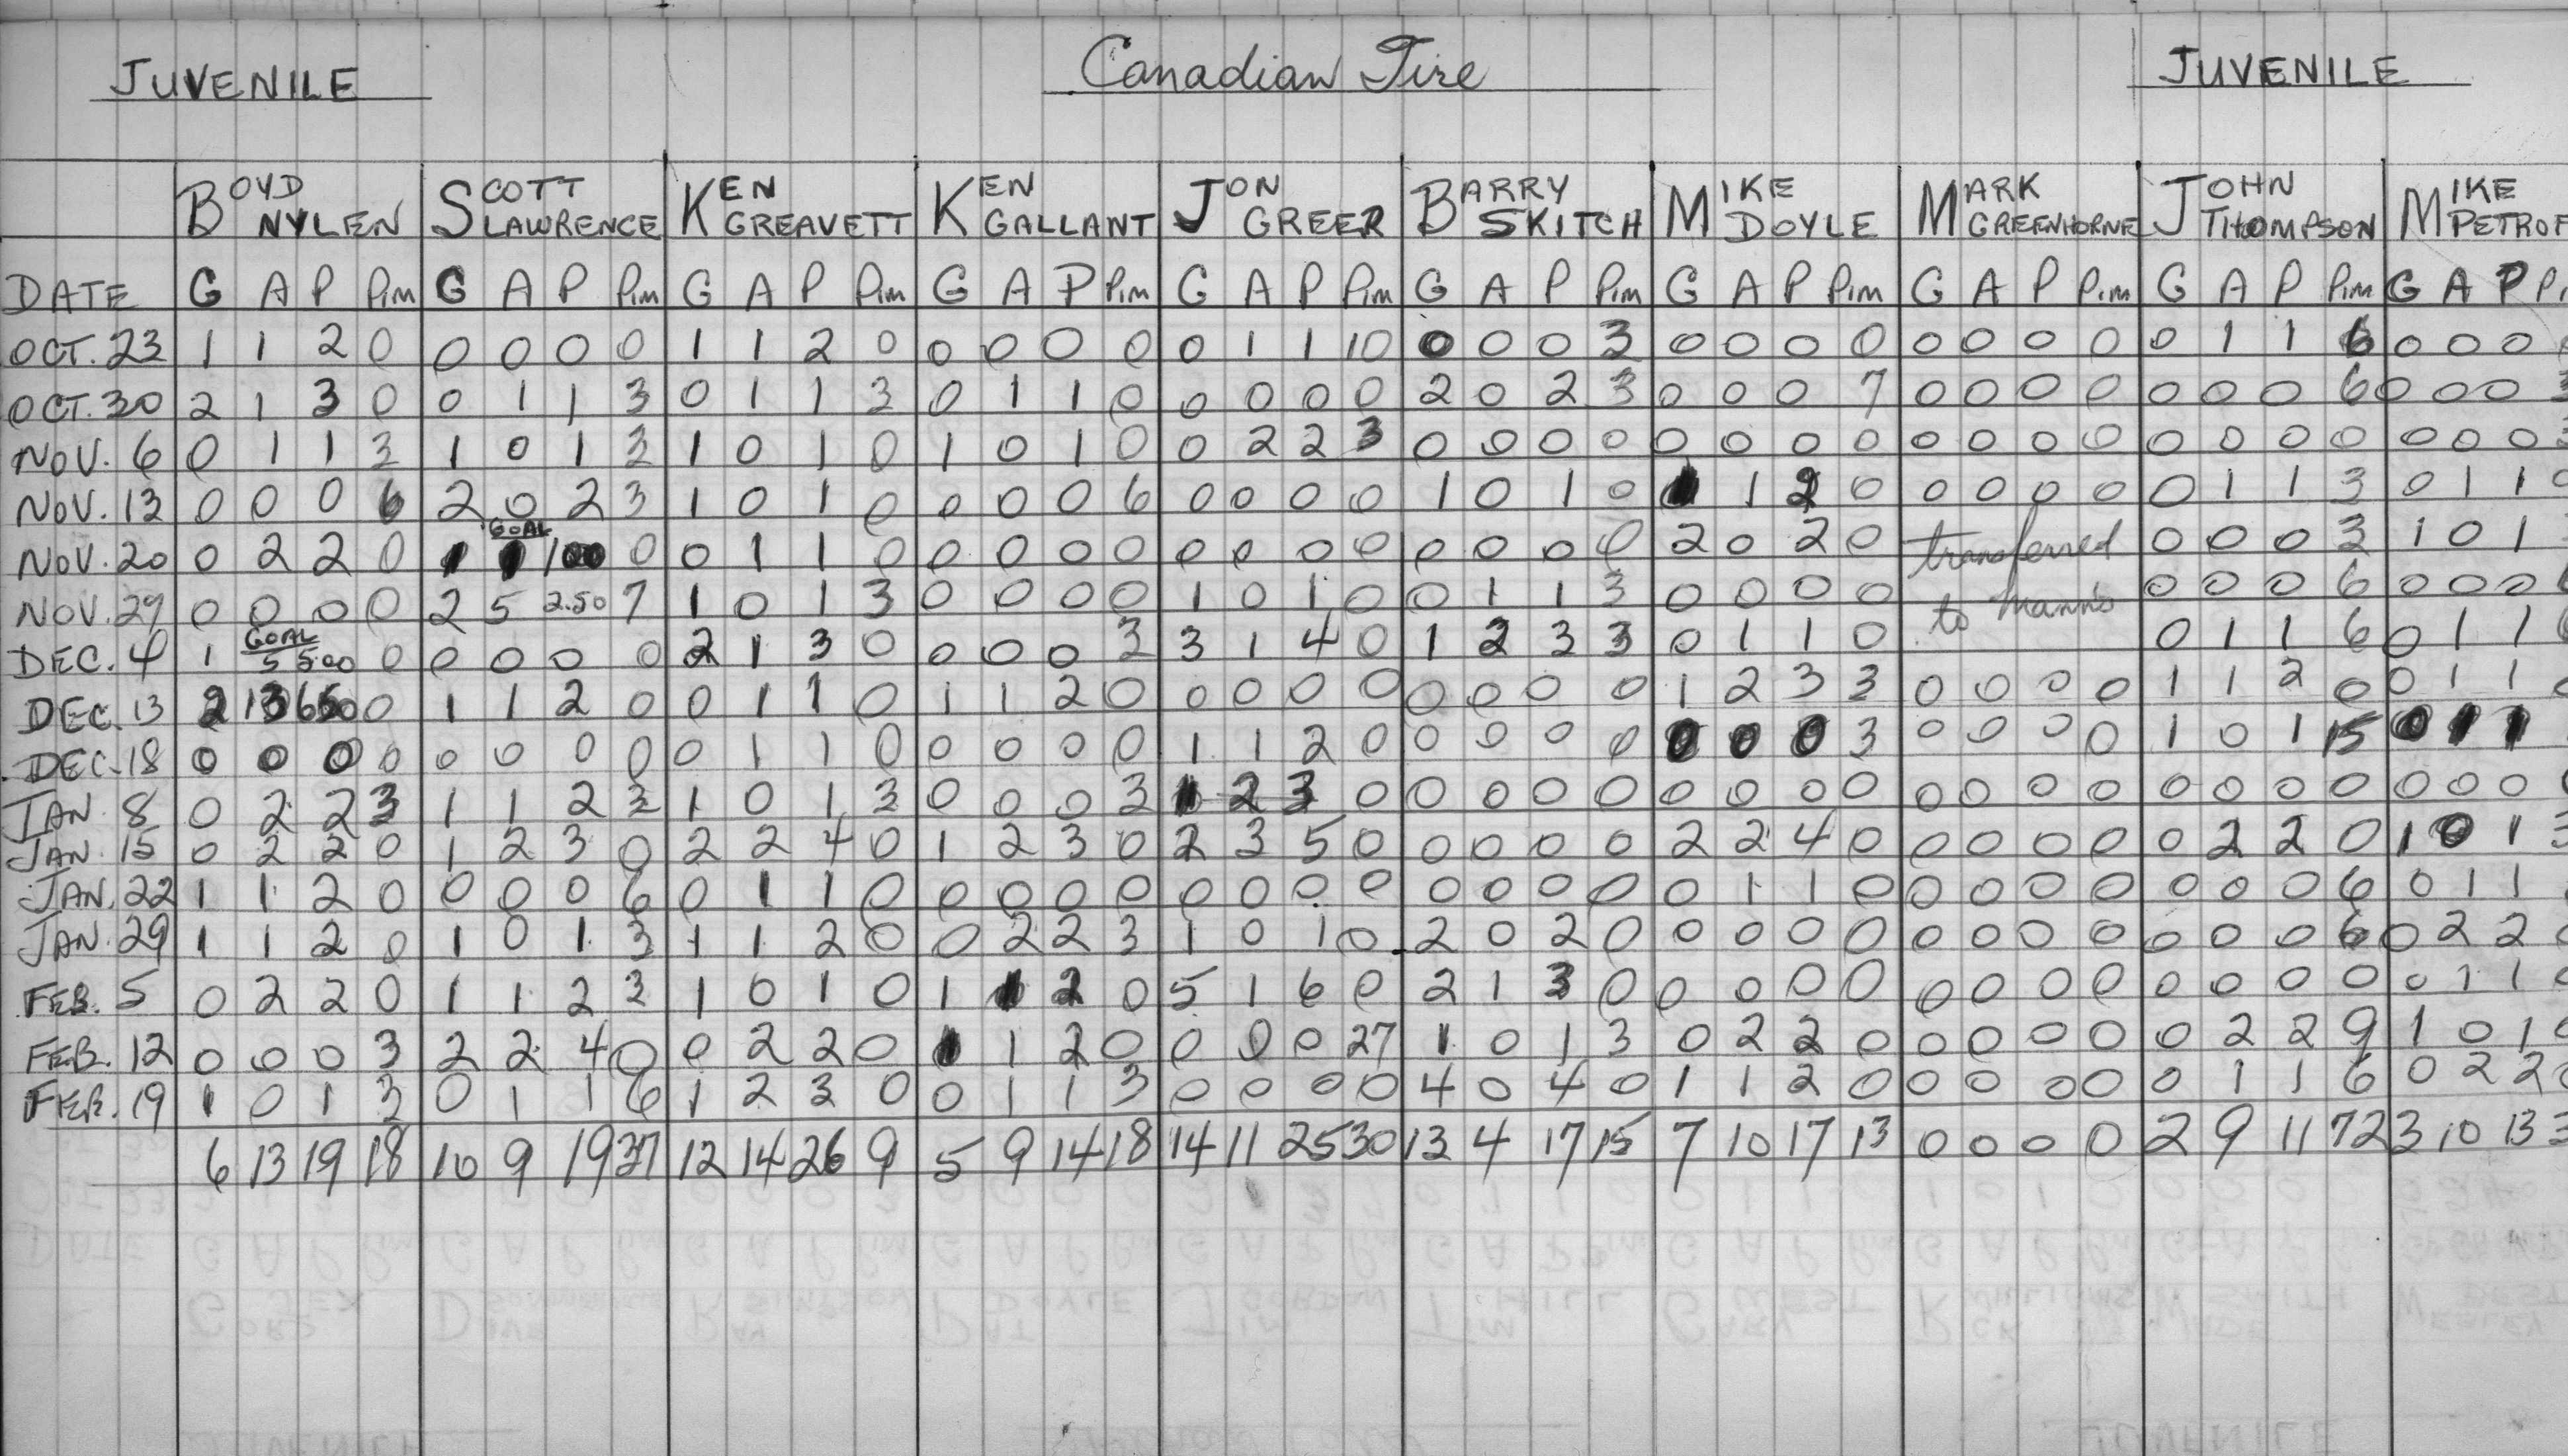 JUVENILE Canadian Tire JUVENILE
BOYD NYLEN SCOTT LAWRENCE KEN GREAVETT KEN GALLANT JON GREER BARRY SKITCH MIKE DOYLE MARK GREENHORNE JOHN THOMPSON MIKE PETROF
DATE G A P Pim G A P Pim G A P Pim G A P Pim G A P Pim G A P Pim G A P Pim G A P Pim G A P Pim G A P
OCT. 23 1 1 2 0 0 0 0 0 1 1 2 0 0 0 0 0 0 1 1 10 0 0 0 3 0 0 0 0 0 0 0 0 0 1 1 6 0 0 0
OCT. 30 2 1 3 0 0 1 1 3 0 1 1 3 0 1 1 0 0 0 0 0 2 0 2 3 0 0 0 7 0 0 0 0 0 0 0 6 0 0 0 3
NOV. 6 0 1 1 3 1 0 1 3 1 0 1 0 1 0 1 0 0 2 2 3 0 0 0 0 0 0 0 0 0 0 0 0 0 0 0 0 0 0 0 3
NOV. 13 0 0 0 6 2 0 2 3 1 0 1 0 0 0 0 6 0 0 0 0 1 0 1 0 1 2 0 0 0 0 0 0 1 1 3 0 1 1 0
GOAL
NOV. 20 0 2 2 0 1 0 0 1 1 0 0 0 0 0 0 0 0 0 0 0 0 0 2 0 2 0 transferred 0 0 0 3 1 0 1
NOV. 29 0 0 0 0 2 5 2.50 7 1 0 1 3 0 0 0 0 1 0 1 0 0 1 1 3 0 0 0 0 to Mann's 0 0 0 6 0 0 0
GOAL
DEC. 4 1 5 5.00 0 0 0 0 0 2 1 3 0 0 0 0 3 3 1 4 0 1 2 3 3 0 1 1 0 0 1 1 6 0 1 1
DEC. 13 2 0 1 1 2 0 0 1 1 0 1 1 2 0 0 0 0 0 0 0 0 0 1 2 3 3 0 0 0 0 1 1 2 0 0 1 1
DEC. 18 0 0 0 0 0 0 0 0 0 1 1 0 0 0 0 0 1 1 2 0 0 0 0 0 0 0 0 3 0 0 0 0 1 0 1 15 0 1 1
JAN. 8 0 2 2 3 1 1 2 3 1 0 1 3 0 0 0 3 1 2 3 0 0 0 0 0 0 0 0 0 0 0 0 0 0 0 0 0 0 0 0
JAN. 15 0 2 2 0 1 2 3 0 2 2 4 0 1 2 3 0 2 3 5 0 0 0 0 0 2 2 4 0 0 0 0 0 0 2 2 0 1 0 1 3
JAN. 22 1 1 2 0 0 0 0 6 0 1 1 0 0 0 0 0 0 0 0 0 0 0 0 0 0 1 1 0 0 0 0 0 0 0 0 6 0 1 1
JAN. 29 1 1 2 0 1 0 1 3 1 1 2 0 0 2 2 3 1 0 1 0 2 0 2 0 0 0 0 0 0 0 0 0 0 0 0 6 0 2 2
FEB. 5 0 2 2 0 1 1 2 3 1 0 1 0 1 1 2 0 5 1 6 0 2 1 3 0 0 0 0 0 0 0 0 0 0 0 0 0 0 1 1
FEB. 12 0 0 0 3 2 2 4 0 0 2 2 0 1 1 2 0 0 0 0 27 1 0 1 3 0 2 2 0 0 0 0 0 0 2 2 9 1 0 1
FEB. 19 1 0 1 3 0 1 1 6 1 2 3 0 0 1 1 3 0 0 0 0 4 0 4 0 1 1 2 0 0 0 0 0 0 1 1 6 0 2 2
6 13 19 18 10 9 19 37 12 14 26 9 5 9 14 18 14 11 25 30 13 4 17 15 7 10 17 13 0 0 0 0 2 9 11 72 3 10 13 3